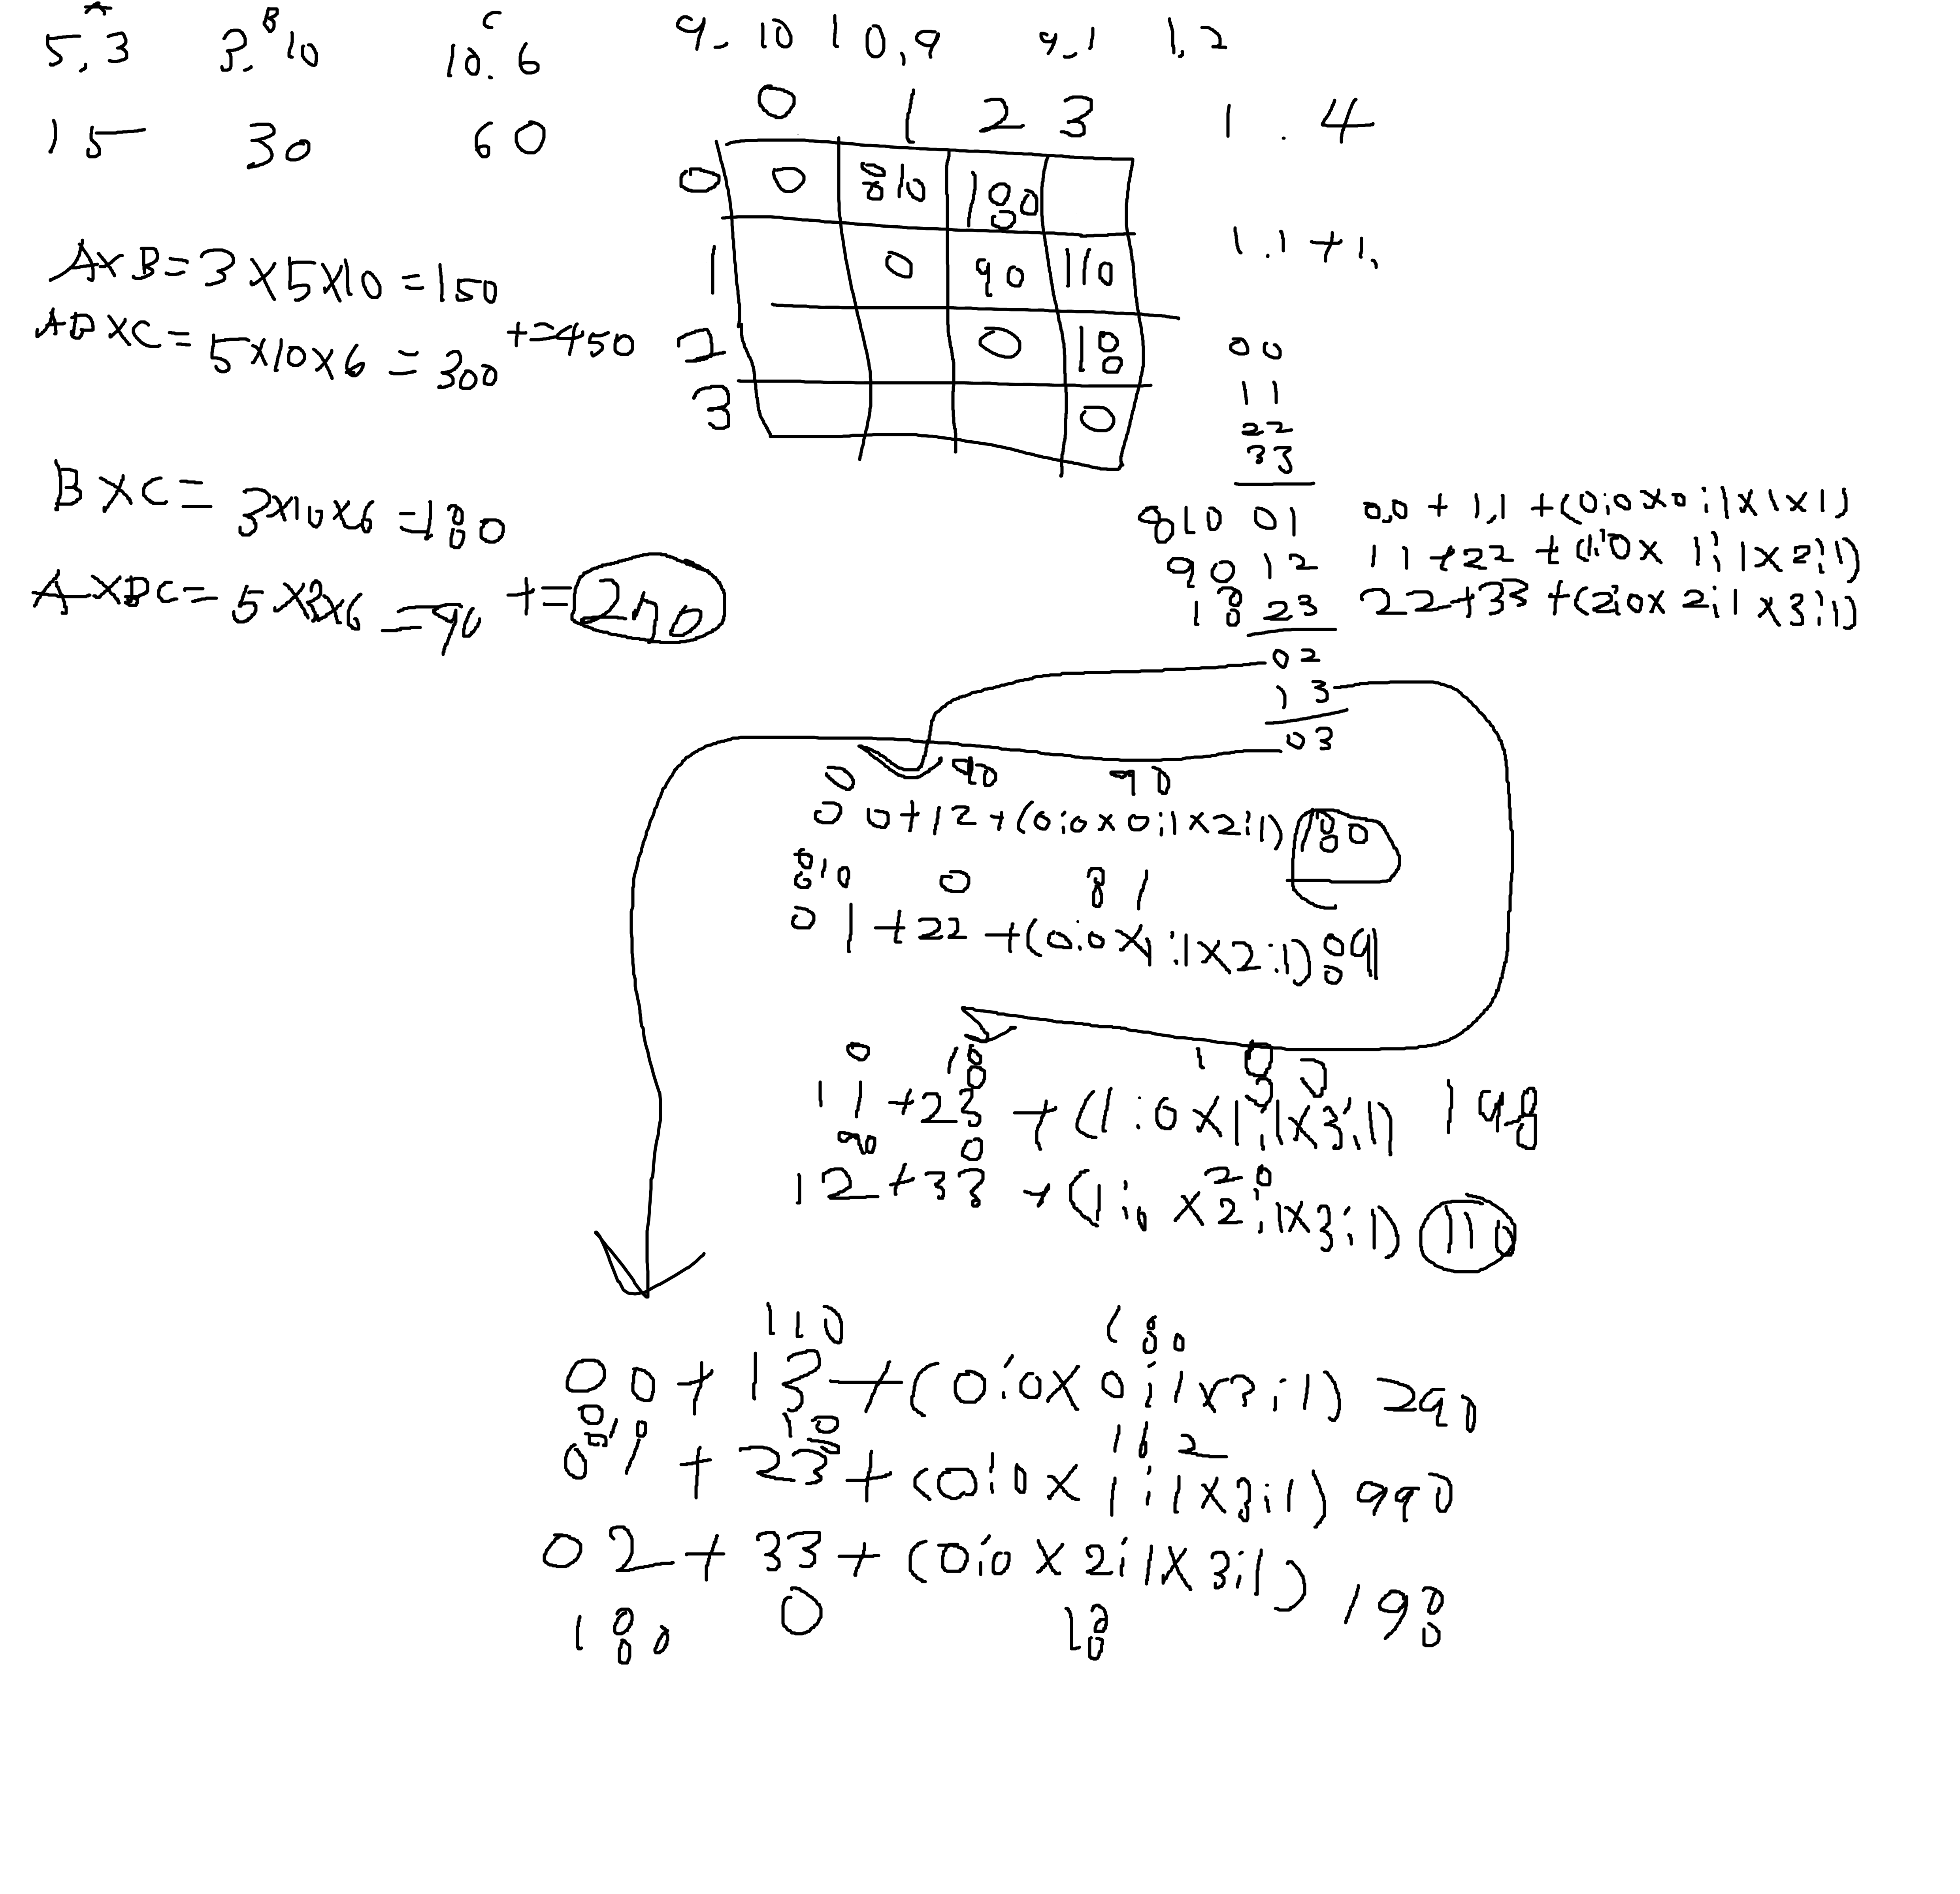 A B C
5,3 3,10 10.6
15 30 60
A×B=3×5×10=150
AB×C=5×10×6=300 +=450
B×C=3×10×6=180
A×BC=5×3×6=90 +=270
9,10 10,9 9,1 1,2
0 1 2 3
0 0 810 180
1 0 90 110
2 0 18
3 0
1.4
1.1+1.
00
11
22
33
810 01 0,0+1,1+(0:0×0:1×1×1)
90 12 11+22+(1:0×1:1×2:1)
18 23 22+33+(2:0×2:1×3:1)
02
13
03
0 90 90
00+12+(0:0×0:1×2:1) 180
810 0 81
01+22+(0:0×1:1×2:1) 891
0 18 1
11+23+(1:0×1:1×3:1) 198
90 0 20
12+33+(1:0×2:1×3:1) 110
110 180
00+13+(0:0×0:1×3:1) 290
810 18 162
01+23+(0:0×1:1×3:1) 990
02+33+(0:0×2:1×3:1) 198
180 0 18